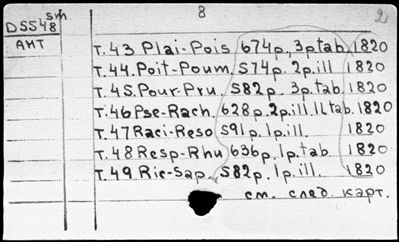 8 2
sm
D5548
АНТ
т.43 Plai-Pois 674p., 3p.tab. 1820
т.44. Poit-Poum. 574p. 2p.ill 1820
т.45. Pour-Pru. 582p. 3p.tab. 1820
т.46 Pse-Rach. 628p. 2p.ill. 1l tab. 1820
т.47 Raci-Reso 591p. 1p.ill. 1820
т.48 Resp-Rhu 636p. 1p.tab. 1820
т.49 Ric-Sap. 582p. 1p.ill. 1820
см. след. карт.